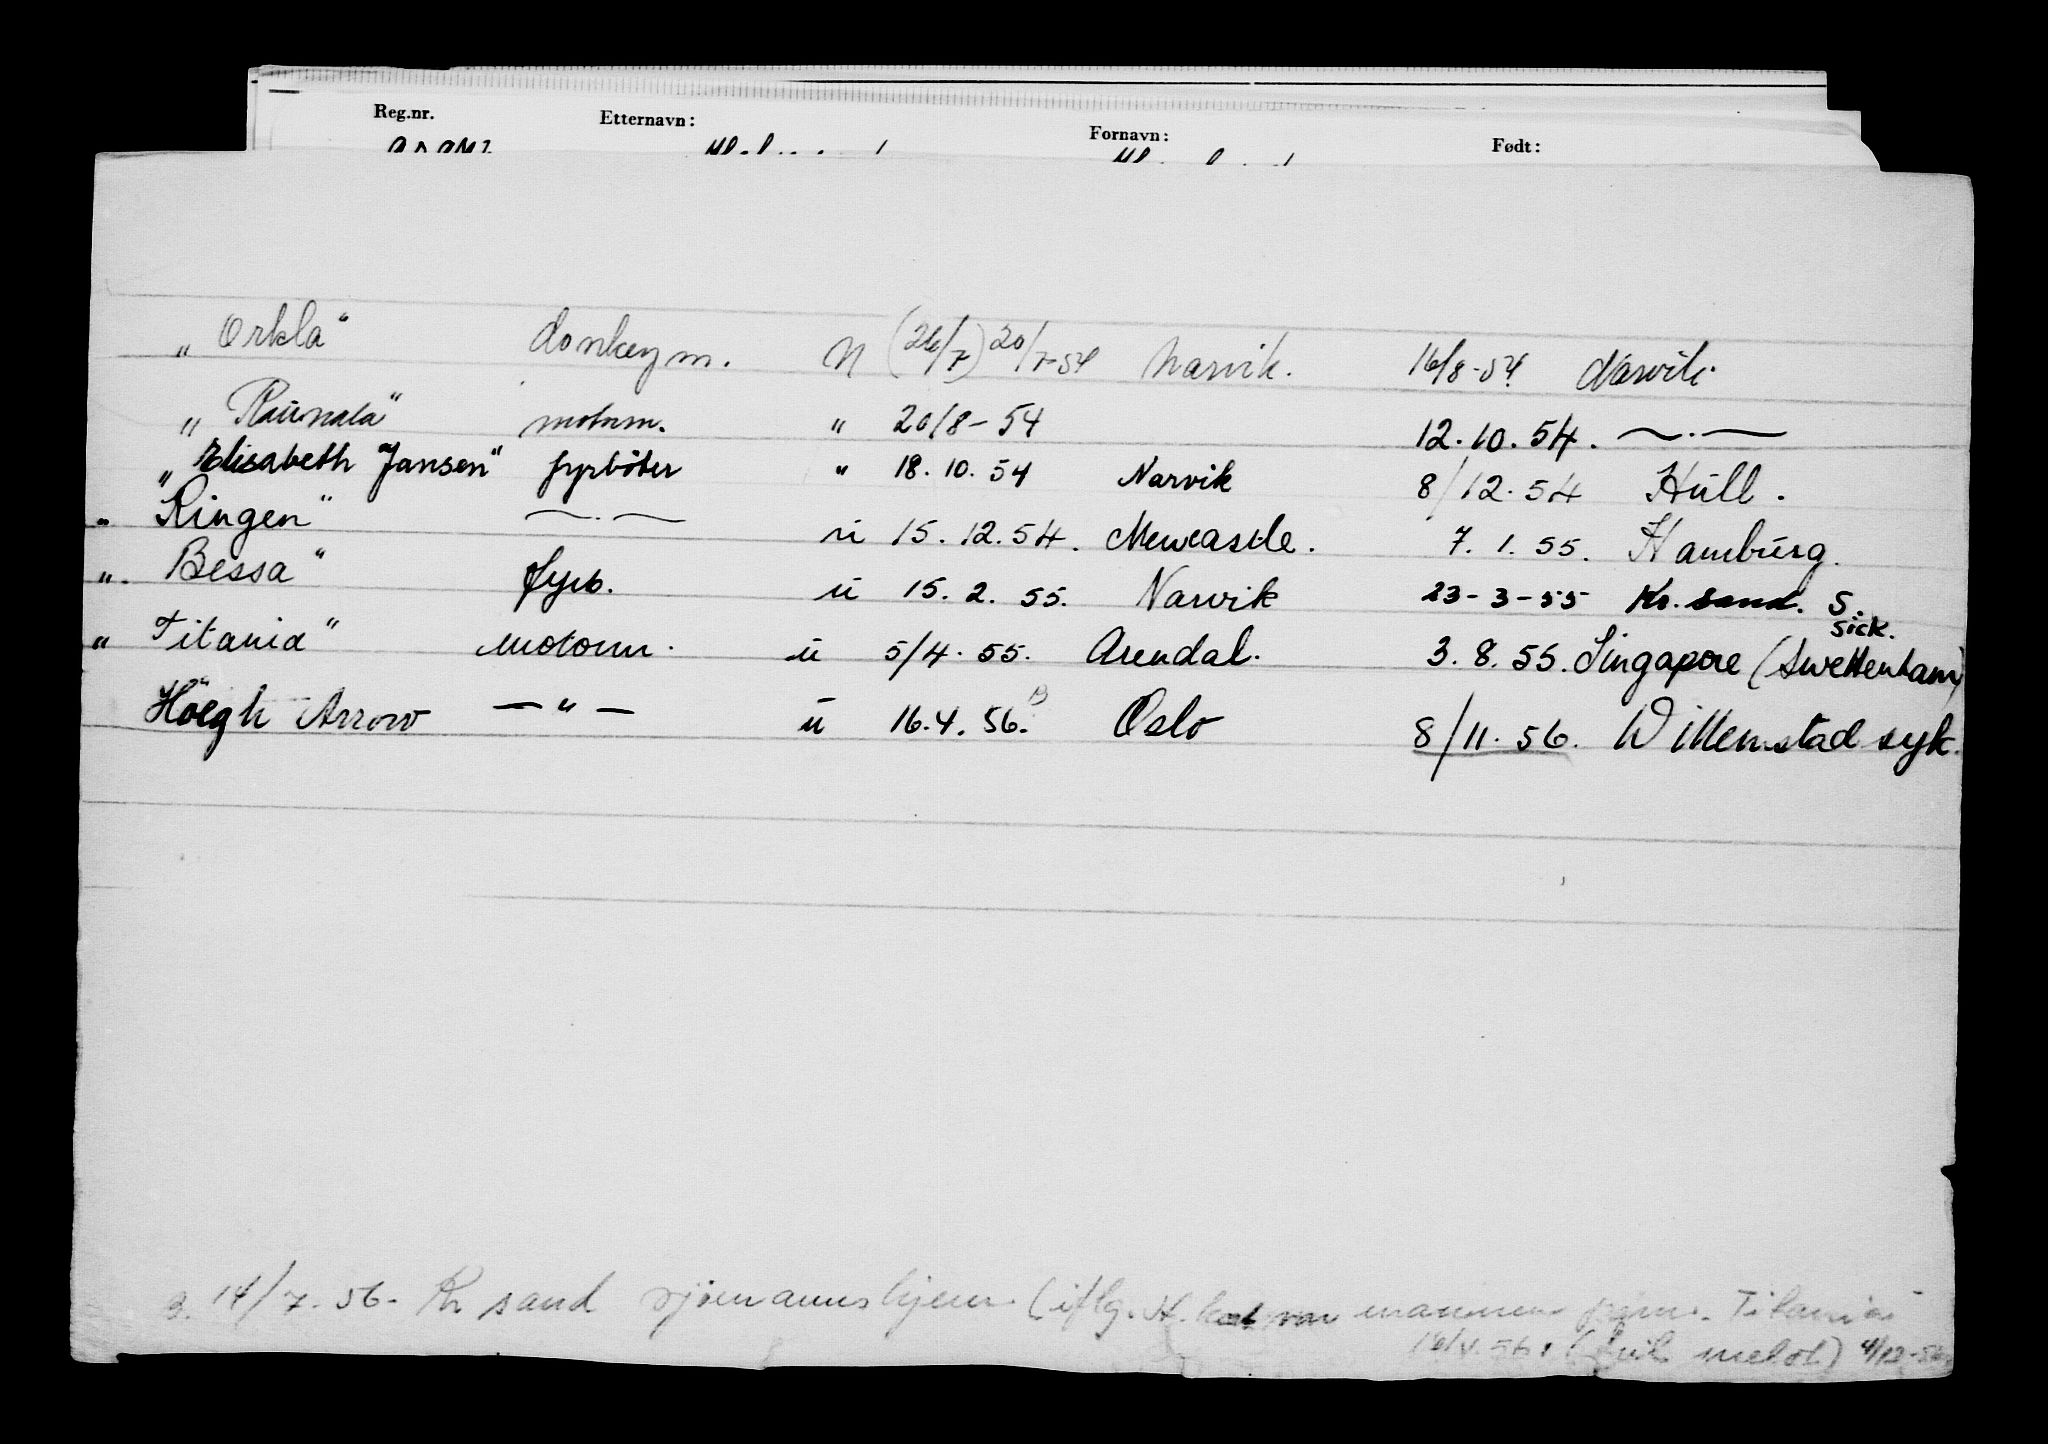 Reg.nr. Etternavn: Fornavn: Født:
„ Orkla“ donkeym. N (26/7) 20/7-54 Narvik. 16/8-54 Narvik.
„ Raunala“ motorm. " 20/8-54 12.10.54. —.—
„ Elisabeth Jansen“ fyrbøter " 18.10.54 Narvik 8/12.54 Hull.
„ Ringen“ —.— u 15.12.54. Newcastle. 7.1.55. Hamburg.
„ Bessa“ fyrb. u 15.2.55. Narvik 23-3-55 Kr. sand. S.
„ Titania“ motorm. u 5/4.55. Arendal. 3.8.55. Singapore (Swettenham) sick.
Höegh Arrow — " — u 16.4.56. Oslo 8/11.56. Willemstad syk.
3. 14/7-56- Kr sand sjømannshjem (iflg. H. kat var mannen Titania
meldt) 4/12-56